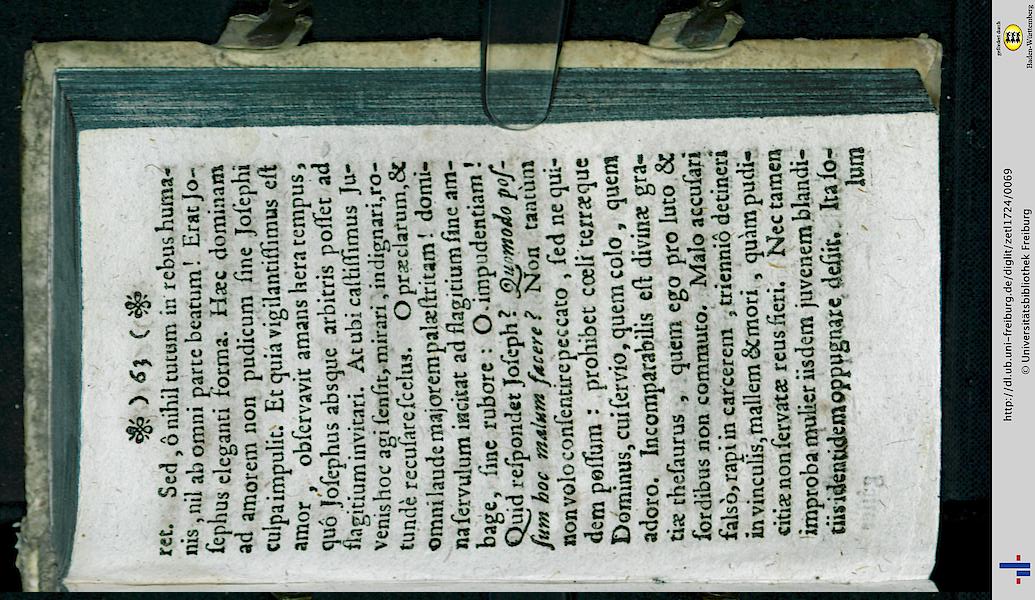 ) 63 (
ret. Sed, ô nihil tutum in rebus huma-
nis, nil ab omni parte beatum! Erat Jo-
ſephus eleganti forma. Hæc dominam
ad amorem non pudicum ſine Joſephi
culpa impulit. Et quia vigilantiſſimus eſt
amor, obſervavit amans hera tempus,
quô Joſephus absque arbitris poſſet ad
flagitium invitari. At ubi caſtiſſimus Ju-
venis hoc agi ſenſit, mirari, indignari, ro-
tundè recuſare ſcelus. O præclarum, &
omni laude majorem palæſtritam! domi-
na ſervulum incitat ad flagitium ſine am-
bage, ſine rubore: O impudentiam!
Quid reſpondet Joſeph? Quomodo poſ-
ſum hoc malum facere? Non tantùm
non volo conſentire peccato, ſed ne qui-
dem poſſum: prohibet cœli terræque
Dominus, cui ſervio, quem colo, quem
adoro. Incomparabilis eſt divinæ gra-
tiæ theſaurus, quem ego pro luto &
ſordibus non commuto. Malo accuſari
falsò, rapi in carcerem, trienniô detineri
in vinculis, mallem & mori, quàm pudi-
citiæ non ſervatæ reus fieri. Nec tamen
improba mulier iisdem juvenem blandi-
tiis identidem oppugnare deſiit. Ita ſo-
lum
http://dl.ub.uni-freiburg.de/diglit/zetl1724/0069
© Universitätsbibliothek Freiburg
gefördert durch
Baden-Württemberg